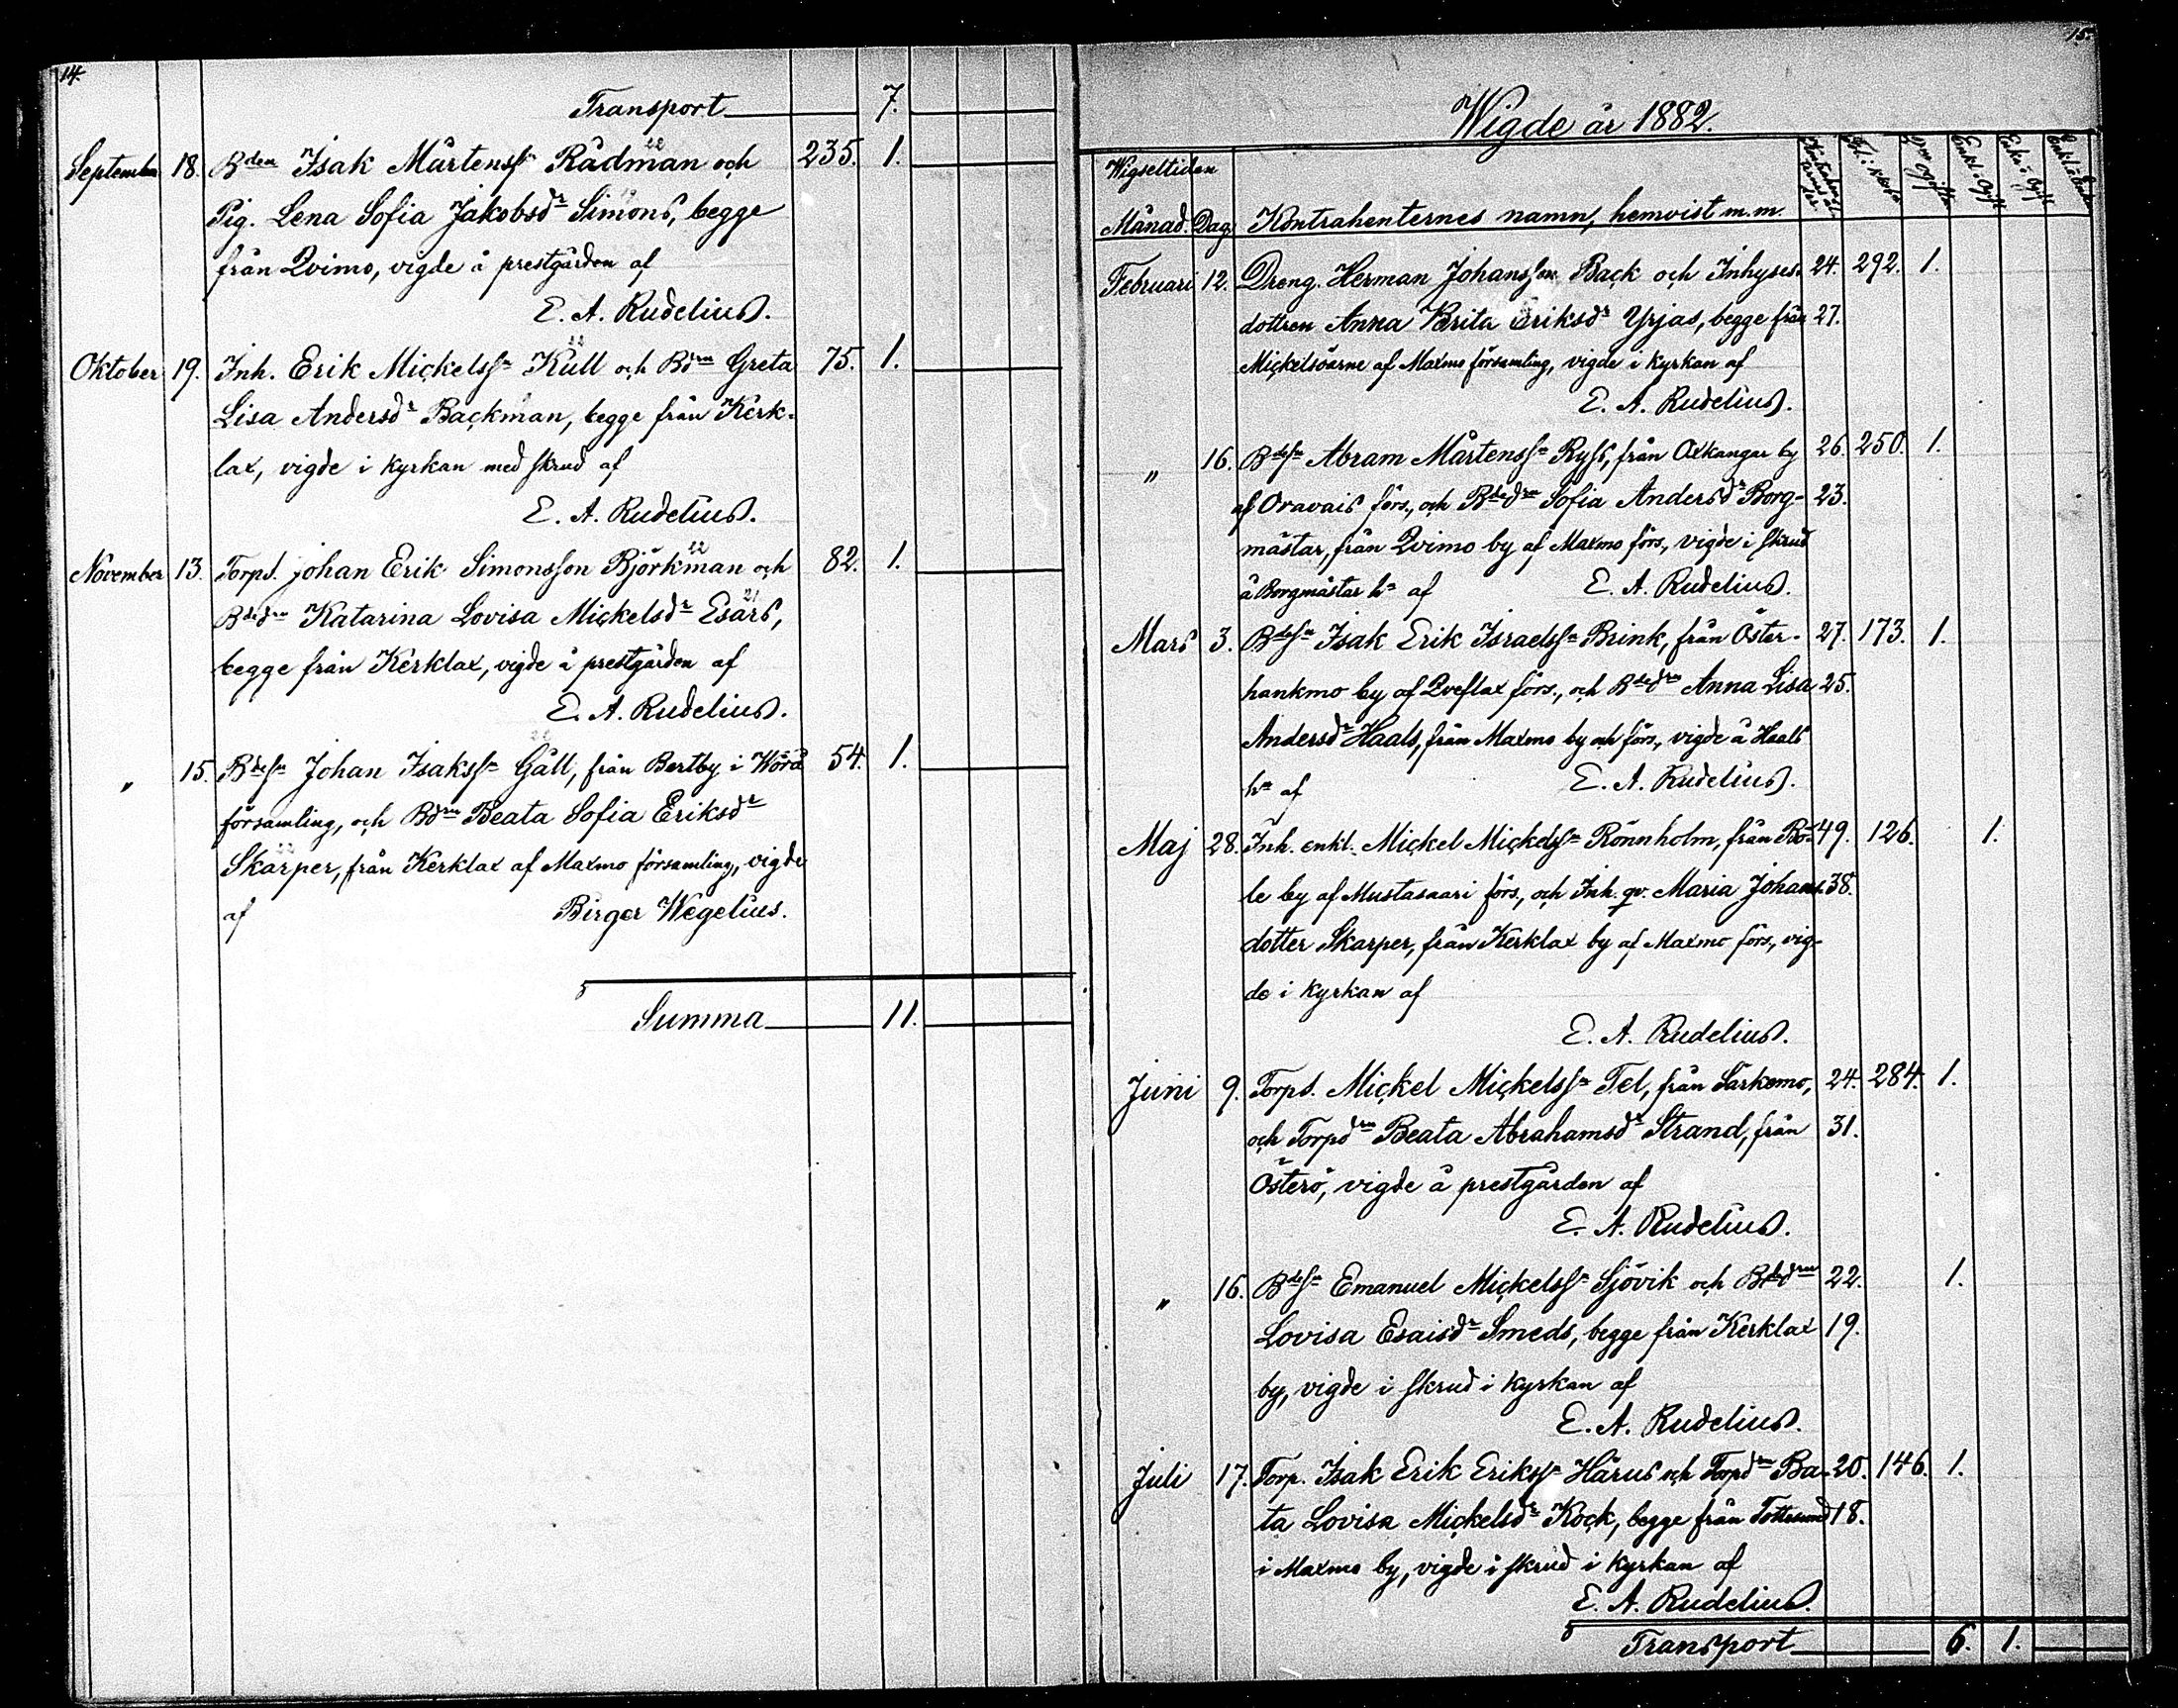 14.
Transport 7.
September 18. Bden Isak Mårtenss:n Rådman och 235. 1.
22
Pig. Lena Sofia Jakobsd:r Simons, begge
från Qvimo, vigde å prestgården af
E. A. Rudelius.
Oktober 19. Inh. Erik Mickelss:n Kull och Bd:rn Greta 75. 1.
22
Lisa Andersd:r Backman, begge från Kerk-
lax, vigde i kyrkan med skrud af
E. A. Rudelius.
November 13. Torps. Johan Erik Simonsson Björkman och 82. 1.
22
Bded:rn Katarina Lovisa Mickelsd:r Esars,
21
begge från Kerklax, vigde å prestgården af
E. A. Rudelius.
" 15. Bdes:n Johan Isakss:n Gäll, från Bertby i Wörå 54. 1.
församling, och Bd:rn Beata Sofia Eriksd:r
Skarper, från Kerklax af Maxmo församling, vigde
22
af Birger Wegelius.
Summa 11.
15.
Wigde år 1882.
Wigseltiden
Månad. Dag. Kontrahenternes namn, hemvist m.m.
Februari 12. Dreng. Herman Johansson Back och Inhyses- 24. 292. 1.
dottren Anna Brita Eriksd:r Yrjas, begge från 27.
Mickelsöarne af Maxmo församling, vigde i kyrkan af
E. A. Rudelius.
" 16. Bdes:n Abram Mårtenss:n Ryss, från Oxkangar by 26. 250. 1.
af Oravais förs., och Bded:rn Sofia Andersd:r Borg- 23.
mästar, från Qvimo by af Maxmo förs., vigde i skrud
å Borgmästar h:n af E. A. Rudelius.
Mars 3. Bdes:n Isak Erik Israelss:n Brink, från Öster- 27. 173. 1.
hankmo by af Qveflax förs., och Bded:rn Anna Lisa 25.
Andersd:r Haals, från Maxmo by och förs., vigde å Haals
h:n af E. A. Rudelius.
Maj 28. Inh. enkl. Mickel Mickelss:n Rönnholm, från Bö- 49. 126. 1.
le by af Mustasaari förs., och Inh. qv. Maria Johans- 38.
dotter Skarper, från Kerklax by af Maxmo förs., vig-
de i kyrkan af
E. A. Rudelius.
Juni 9. Torps. Mickel Mickelss:n Tel, från Särkemo, 24. 284. 1.
och Torpd:rn Beata Abrahamsd:r Strand, från 31.
Österö, vigde å prestgården af
E. A. Rudelius.
" 16. Bdes:n Emanuel Mickelss:n Sjövik och Bded:rn 22. 1.
Lovisa Esaisd:r Smeds, begge från Kerklax 19.
by, vigde i skrud i kyrkan af
E. A. Rudelius.
Juli 17. Torp. Isak Erik Erikss:n Härus och Torpd:rn Ba- 20. 146. 1.
ta Lovisa Mickelsd:r Kock, begge från Tottesund 18.
i Maxmo by, vigde i skrud i kyrkan af
E. A. Rudelius.
Transport 6. 1.